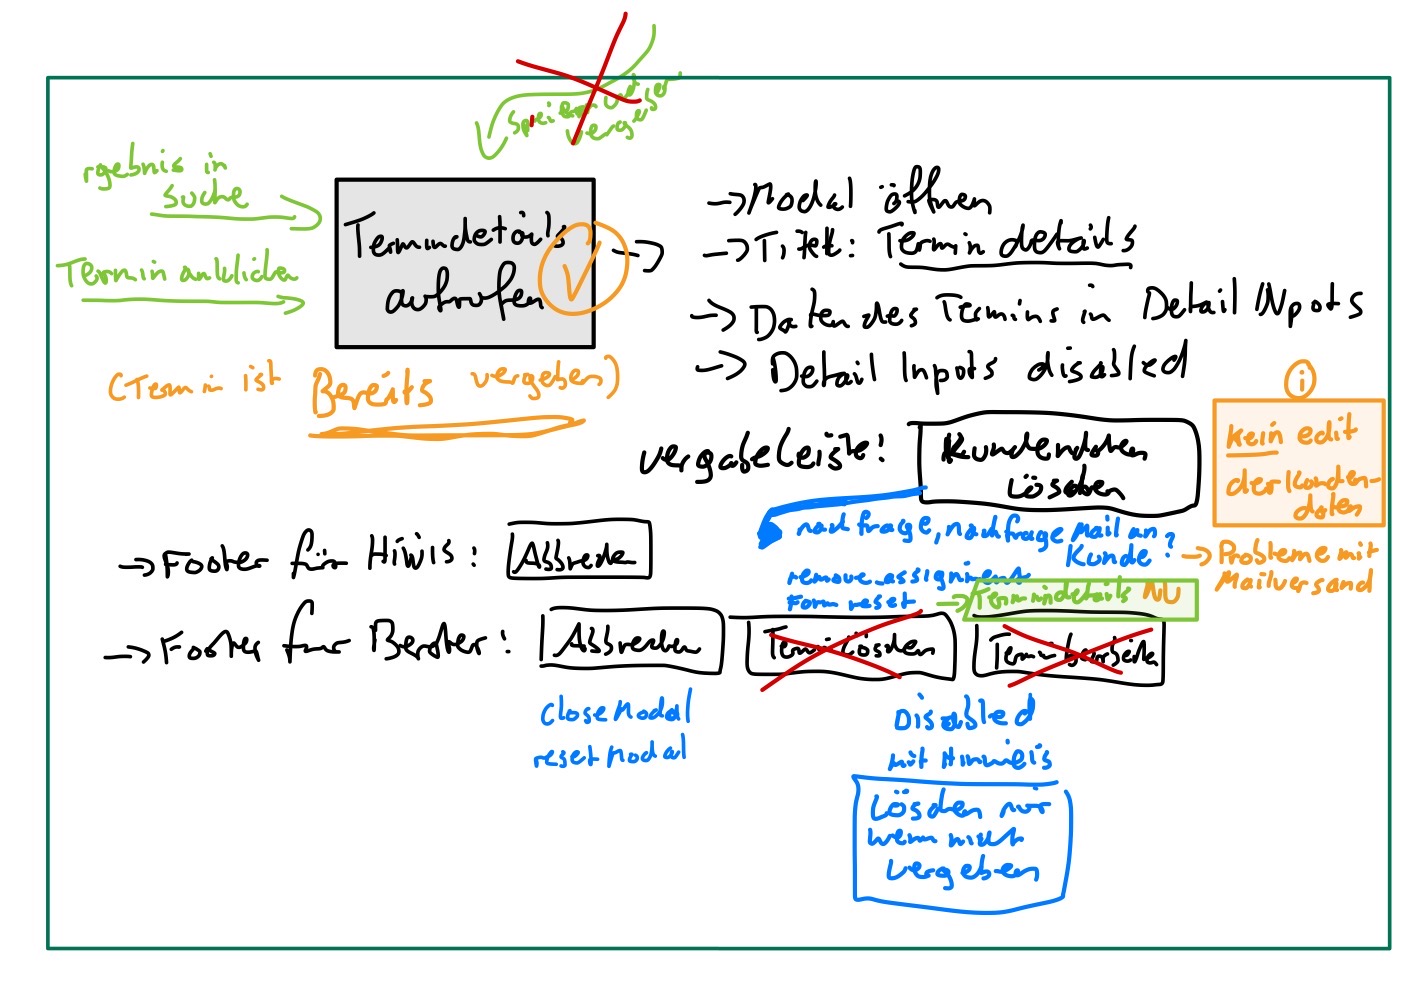 rgebnis in
Suche
Termin anklicken
Termindetails
aufrufen
(Termin ist Bereits vergeben)
→ Modal öffnen
→ Titel: Termindetails
→ Daten des Termins in Detail INputs
→ Detail Inputs disabled
Vergabeleiste: Kundendaten
Löschen
i
Kein edit
der Kunden-
daten
→ Probleme mit
Mailversand
nachfrage, nachfrage Mail an
Kunde?
remove_assignment
Form reset → Termindetails NU
→ Footer für Hiwis: Abbrechen
→ Footer für Berater: Abbrechen Termin löschen Termin bearbeiten
closeModal
resetModal
Disabled
mit Hinweis
Löschen nur
wenn nicht
vergeben